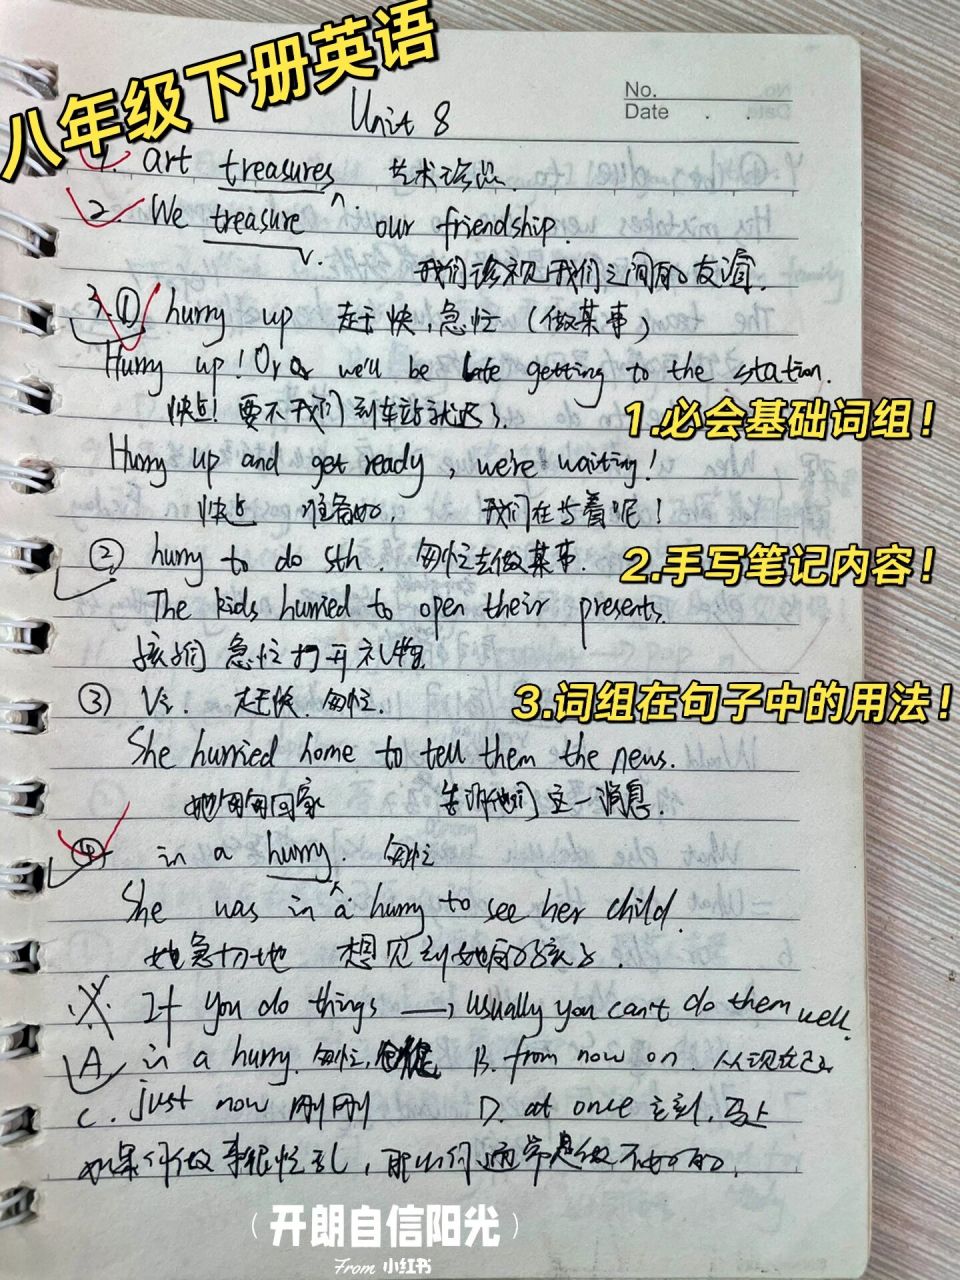 八年级下册英语
No.
Date
Unit 8
1. art treasures 艺术珍品.
2. We treasure our friendship.
v.
我们珍视我们之间的友谊.
3. ① hurry up 赶快,急忙(做某事)
Hurry up! Or we'll be late getting to the station.
快点! 要不我们到车站就迟了.
1.必会基础词组!
Hurry up and get ready, we're waiting!
快点 准备好, 我们在等着呢!
② hurry to do sth. 匆忙去做某事.
2.手写笔记内容!
The kids hurried to open their presents.
孩子们急忙打开礼物.
③ Vi. 赶快.匆忙.
3.词组在句子中的用法!
She hurried home to tell them the news.
她匆匆回家 告诉他们这一消息.
④ in a hurry. 匆忙
She was in a hurry to see her child.
她急切地 想见到她的孩子.
If you do things ——, usually you can't do them well.
A in a hurry. 匆忙, B. from now on. 从现在起
C. just now 刚刚 D. at once 立刻.马上
如果你做事很忙乱, 那么你通常是做不好的.
(开朗自信阳光)
From 小红书